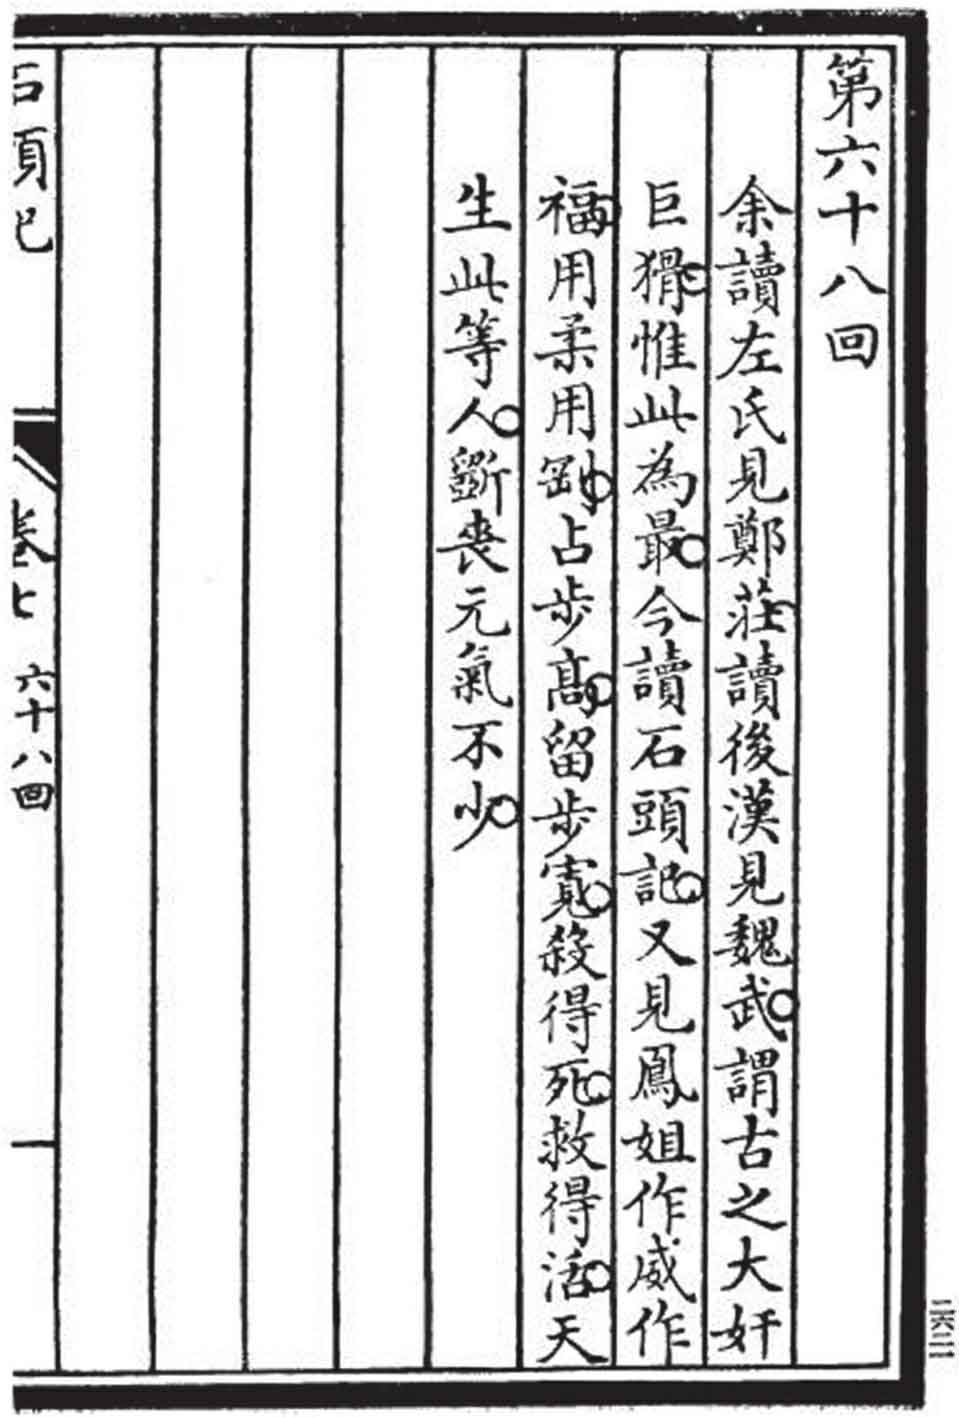 第六十八回
余讀左氏見鄭莊讀後漢見魏武謂古之大奸
巨猾惟此為最今讀石頭記又見鳳姐作威作
福用柔用剛占步髙留步寬殺得死救得活天
生此等人斵喪元氣不少
石頭記
卷七
六十八回
二六二一